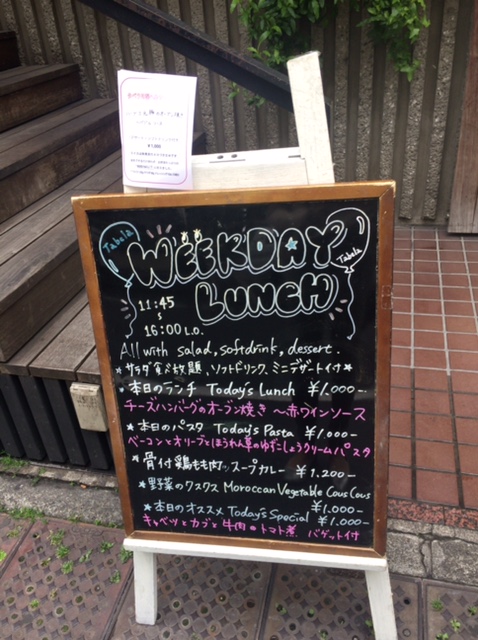 ¥1,000
Tabela
Tabela
WEEKDAY
LUNCH
11:45
~
16:00 L.O.
All with salad, softdrink, dessert.
★サラダ食べ放題、ソフトドリンク、ミニデザート付★
★本日のランチ Today's Lunch ¥1,000-
チーズハンバーグのオーブン焼き 〜赤ワインソース
★本日のパスタ Today's Pasta ¥1,000-
ベーコンとオリーブとほうれん草のゆずこしょうクリームパスタ
★骨付鶏もも肉のスープカレー ¥1,200-
★野菜のクスクス Moroccan Vegetable Cous Cous
¥1,000-
★本日のオススメ Today's Special ¥1,000-
キャベツとカブと牛肉のトマト煮 バゲット付